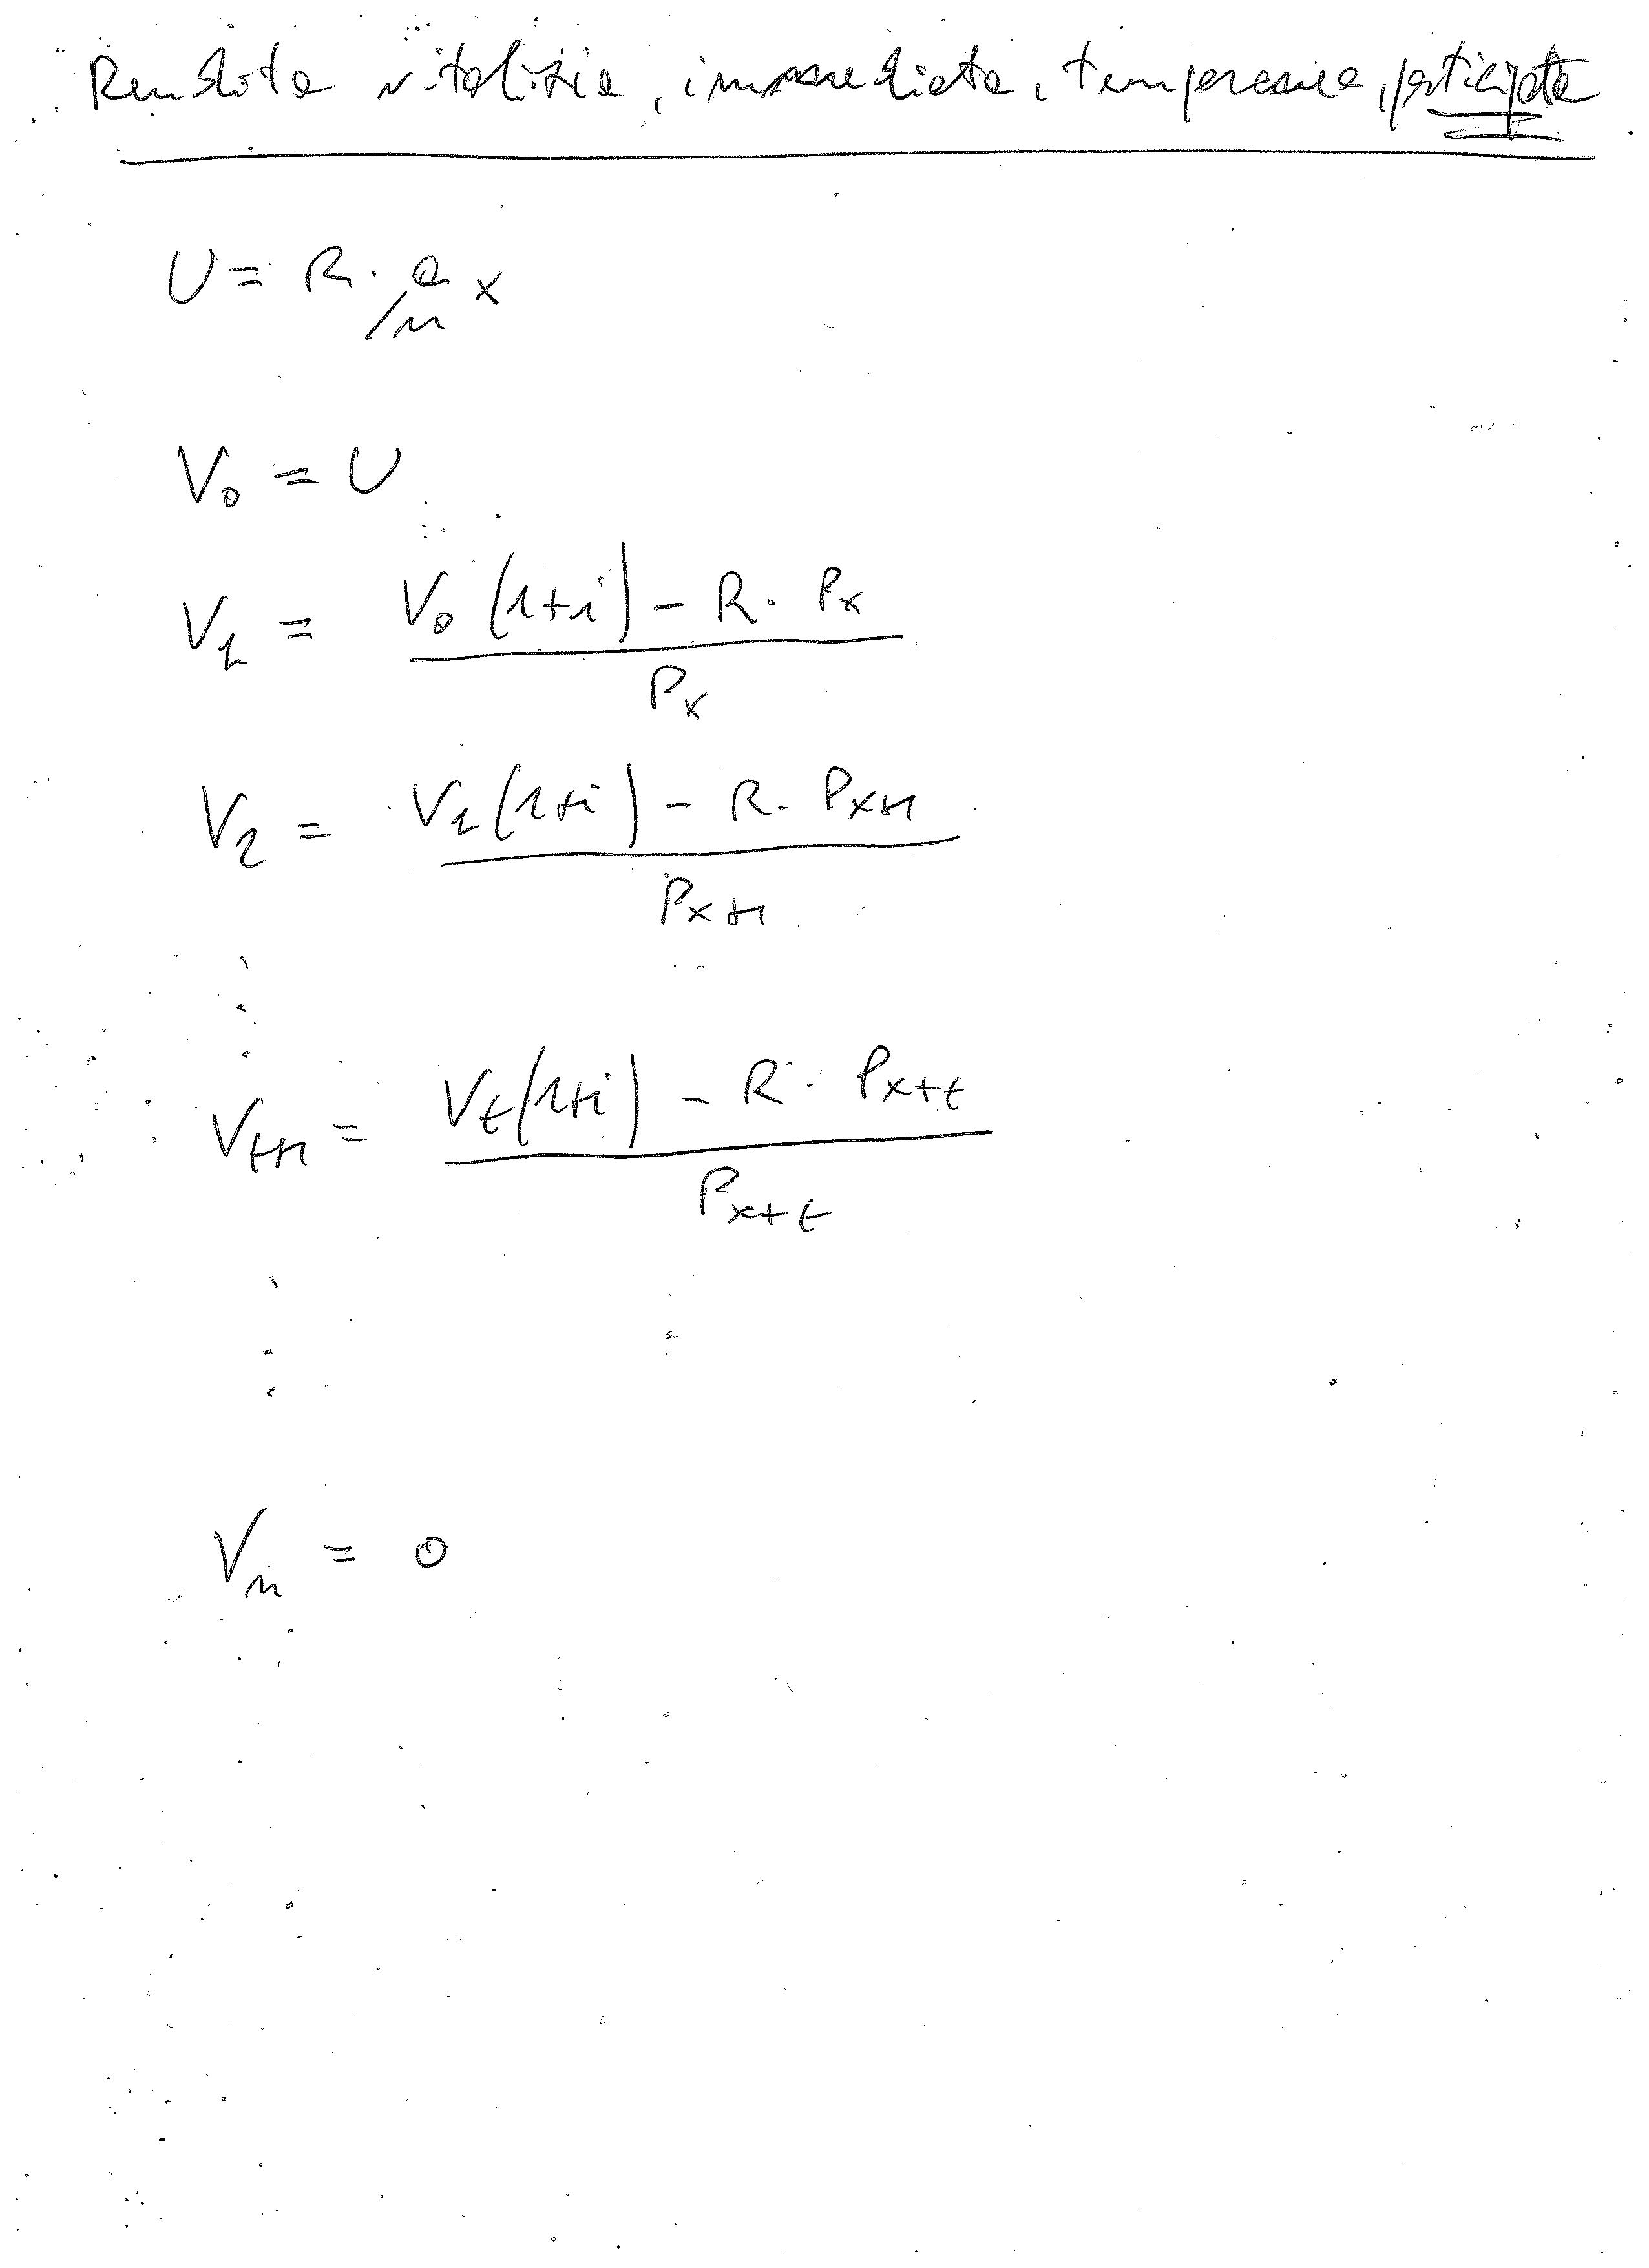 Rendita vitalizia, immediata, temporanea, posticipata
U = R · /n a x
V₀ = U
V₁ = V₀ (1+i) - R · Px / Px
V₂ = V₁ (1+i) - R · Px+1 / Px+1
⋮
Vt+1 = Vt (1+i) - R · Px+t / Px+t
⋮
Vn = 0